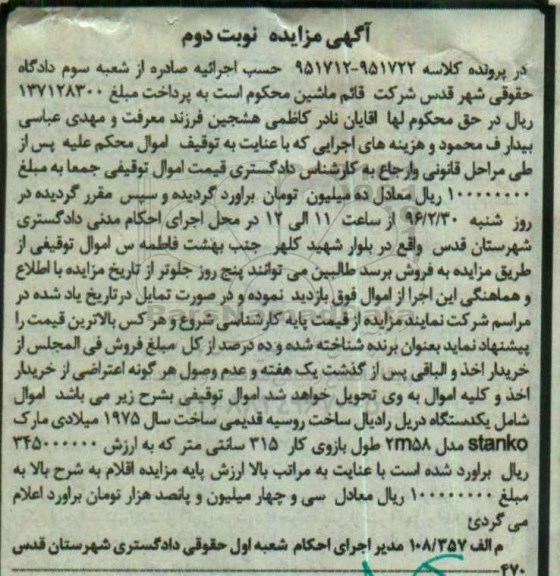 آگهی مزایده نوبت دوم
در پرونده کلاسه ۹۵۱۷۲۲-۹۵۱۷۱۲ حسب اجرائیه صادره از شعبه سوم دادگاه
حقوقی شهر قدس شرکت قائم ماشین محکوم است به پرداخت مبلغ ۱۳۷۱۲۸۳۰۰
ریال در حق محکوم لها اقایان نادر کاظمی هشجین فرزند معرفت و مهدی عباسی
بیدار ف محمود و هزینه های اجرایی که با عنایت به توقیف اموال محکم علیه پس از
طی مراحل قانونی وارجاع به کارشناس دادگستری قیمت اموال توقیفی جمعا به مبلغ
۱۰۰۰۰۰۰۰۰ ریال معادل ده میلیون تومان براورد گردیده و سپس مقرر گردیده در
روز شنبه ۹۶/۲/۳۰ از ساعت ۱۱ الی ۱۲ در محل اجرای احکام مدنی دادگستری
شهرستان قدس واقع در بلوار شهید کلهر جنب بهشت فاطمه س اموال توقیفی از
طریق مزایده به فروش برسد طالبین می توانند پنج روز جلوتر از تاریخ مزایده با اطلاع
و هماهنگی این اجرا از اموال فوق بازدید نموده و در صورت تمایل در تاریخ یاد شده در
مراسم شرکت نمایند مزایده از قیمت پایه کارشناسی شروع و هر کس بالاترین قیمت را
پیشنهاد نماید بعنوان برنده شناخته شده و ده درصد از کل مبلغ فروش فی المجلس از
خریدار اخذ و الباقی پس از گذشت یک هفته و عدم وصول هر گونه اعتراضی از خریدار
اخذ و کلیه اموال به وی تحویل خواهد شد اموال توقیفی بشرح زیر می باشد اموال
شامل یکدستگاه دریل رادیال ساخت روسیه قدیمی ساخت سال ۱۹۷۵ میلادی مارک
stanko مدل ۲m۵۸ طول بازوی کار ۳۱۵ سانتی متر که به ارزش ۳۴۵۰۰۰۰۰۰
ریال براورد شده است با عنایت به مراتب بالا ارزش پایه مزایده اقلام به شرح بالا به
مبلغ ۱۰۰۰۰۰۰۰۰ ریال معادل سی و چهار میلیون و پانصد هزار تومان براورد اعلام
می گردئ
م الف ۱۰۸/۳۵۷ مدیر اجرای احکام شعبه اول حقوقی دادگستری شهرستان قدس
۴۷۰